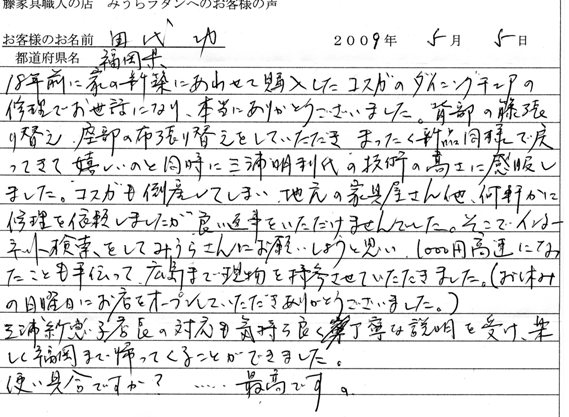 籐家具職人の店　みうらラタンへのお客様の声
お客様のお名前　田代 功　2009年 5月 5日
都道府県名　福岡県
18年前に家の新築にあわせて購入したコスガのダイニングチェアの
修理でお世話になり、本当にありがとうございました。背部の籐張
り替え、座部の布張り替えをしていただき まったく新品同様で戻
ってきて嬉しいのと同時に三浦明利代の技術の高さに感服し
ました。コスガも倒産してしまい 地元の家具屋さん他、何軒かに
修理を依頼しましたが良い返事をいただけませんでした。そこでインター
ネット検索をしてみうらさんにお願いしようと思い、1000円高速になっ
たことも手伝って、広島まで現物を持参させていただきました。(お休み
の日曜日にお店をオープンしていただきありがとうございました。)
三浦紗恵子店長の対応も気持ち良く 丁寧な説明を受け、楽
しく福岡まで帰ってくることができました。
使い具合ですか？ …… 最高です。